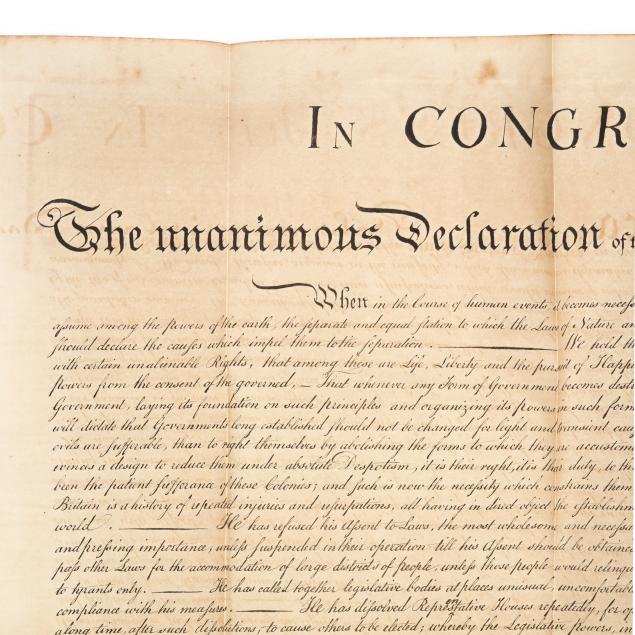 In CONGR
The unanimous Declaration of t
When in the Course of human events, it becomes necess
assume among the powers of the earth, the separate and equal station to which the Laws of Nature an
should declare the causes which impel them to the separation. We hold th
with certain unalienable Rights, that among these are Life, Liberty and the pursuit of Happi
powers from the consent of the governed, — That whenever any Form of Government becomes dest
Government, laying its foundation on such principles and organizing its powers in such form
will dictate that Governments long established should not be changed for light and transient cau
evils are sufferable, than to right themselves by abolishing the forms to which they are accustom
evinces a design to reduce them under absolute Despotism, it is their right, it is their duty, to th
been the patient sufferance of these Colonies; and such is now the necessity which constrains them
Britain is a history of repeated injuries and usurpations, all having in direct object the establishm
world. He has refused his Assent to Laws, the most wholesome and necessa
and pressing importance, unless suspended in their operation till his Assent should be obtained
pass other Laws for the accommodation of large districts of people, unless those people would relinqu
to tyrants only. He has called together legislative bodies at places unusual, uncomfortable
compliance with his measures. He has dissolved Representative Houses repeatedly, for op
a long time, after such dissolutions, to cause others to be elected; whereby the Legislative powers, in